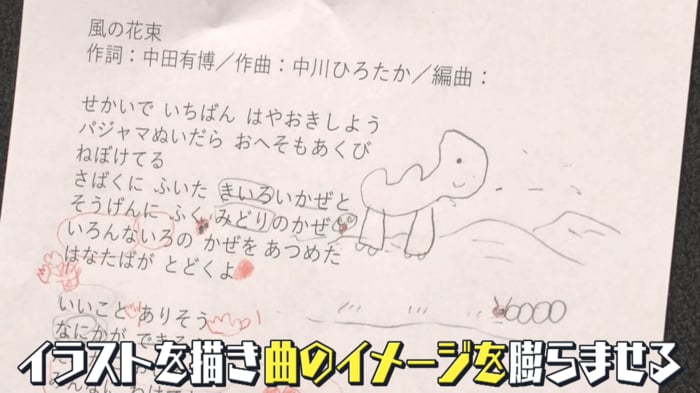 風の花束
作詞：中田有博／作曲：中川ひろたか／編曲：
せかいで いちばん はやおきしよう
パジャマぬいだら おへそもあくび
ねぼけてる
さばくに ふいた きいろいかぜと
そうげんに ふく みどりのかぜ
いろんないろの かぜを あつめた
はなたばが とどくよ
いいこと ありそう
なにかが できそ
イラストを描き曲のイメージを膨らませる